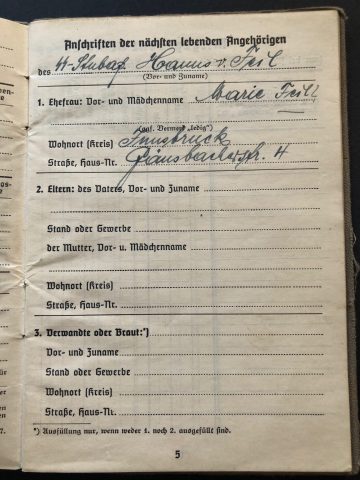 Anschriften der nächsten lebenden Angehörigen
des ϟϟ-Stubaf. Hanns v. Feil
(Vor- und Zuname)
1. Ehefrau: Vor- und Mädchenname Marie Feil
(ggf. Vermerk „ledig")
Wohnort (Kreis) Innsbruck
Straße, Haus-Nr. Gänsbacherstr. 4
2. Eltern: des Vaters, Vor- und Zuname
Stand oder Gewerbe
der Mutter, Vor- u. Mädchenname
Wohnort (Kreis)
Straße, Haus-Nr.
3. Verwandte oder Braut:*)
Vor- und Zuname
Stand oder Gewerbe
Wohnort (Kreis)
Straße, Haus-Nr.
*) Ausfüllung nur, wenn weder 1. noch 2. ausgefüllt sind.
5